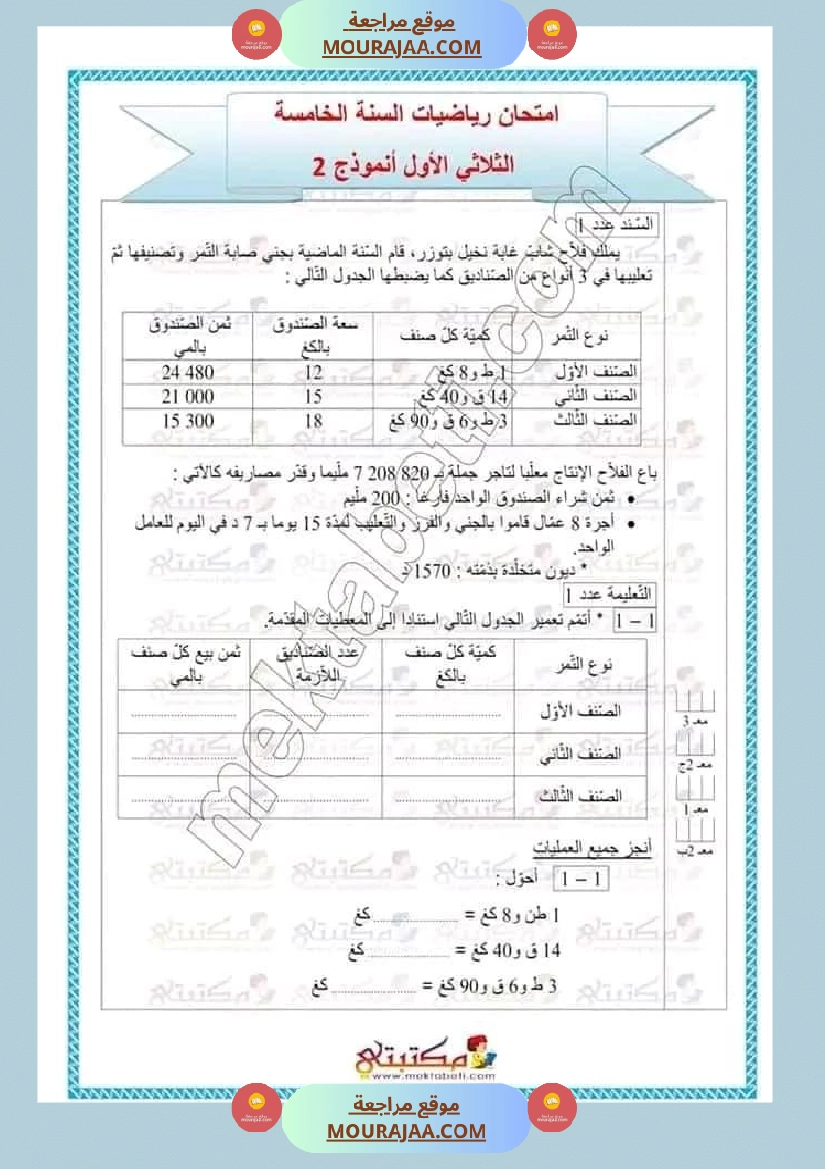 موقع مراجعة
MOURAJAA.COM
امتحان رياضيات السنة الخامسة
الثلاثي الأول أنموذج 2
السّند عدد 1
يملك فلاّح شابّ غابة نخيل بتوزر، قام السّنة الماضية بجني صابة التّمر وتصنيفها ثمّ
تعليبها في 3 أنواع من الصّناديق كما يضبطها الجدول التّالي :
نوع التّمر كميّة كلّ صنف سعة الصّندوق بالكغ ثمن الصّندوق بالمي
الصّنف الأوّل 1 ط و8 كغ 12 24 480
الصّنف الثّاني 14 ق و40 كغ 15 21 000
الصّنف الثّالث 3 ط و6 ق و90 كغ 18 15 300
باع الفلاّح الإنتاج معلّبا لتاجر جملة بـ 820 208 7 ملّيما وقدّر مصاريفه كالآتي :
• ثمن شراء الصندوق الواحد فارغا : 200 ملّيم
• أجرة 8 عمّال قاموا بالجني والفرز والتّعليب لمدّة 15 يوما بـ 7 د في اليوم للعامل
الواحد.
* ديون متخلّدة بذمّته : 1570 د
التّعليمة عدد 1
1 – 1 * أتمّم تعمير الجدول التّالي استنادا الى المعطيات المقدّمة.
نوع التّمر كميّة كلّ صنف بالكغ عدد الصّناديق اللاّزمة ثمن بيع كلّ صنف بالمي
الصّنف الأوّل ........ ........ ........
الصّنف الثّاني ........ ........ ........
الصّنف الثّالث ........ ........ ........
معـ 3
معـ 2ج
معـ 1
معـ 2ب
أنجز جميع العمليات
1 – 1 أحوّل :
1 طن و8 كغ = ........ كغ
14 ق و40 كغ = ........ كغ
3 ط و6 ق و90 كغ = ........ كغ
mektabeti.com
مكتبتي
www.mektabeti.com
موقع مراجعة
MOURAJAA.COM